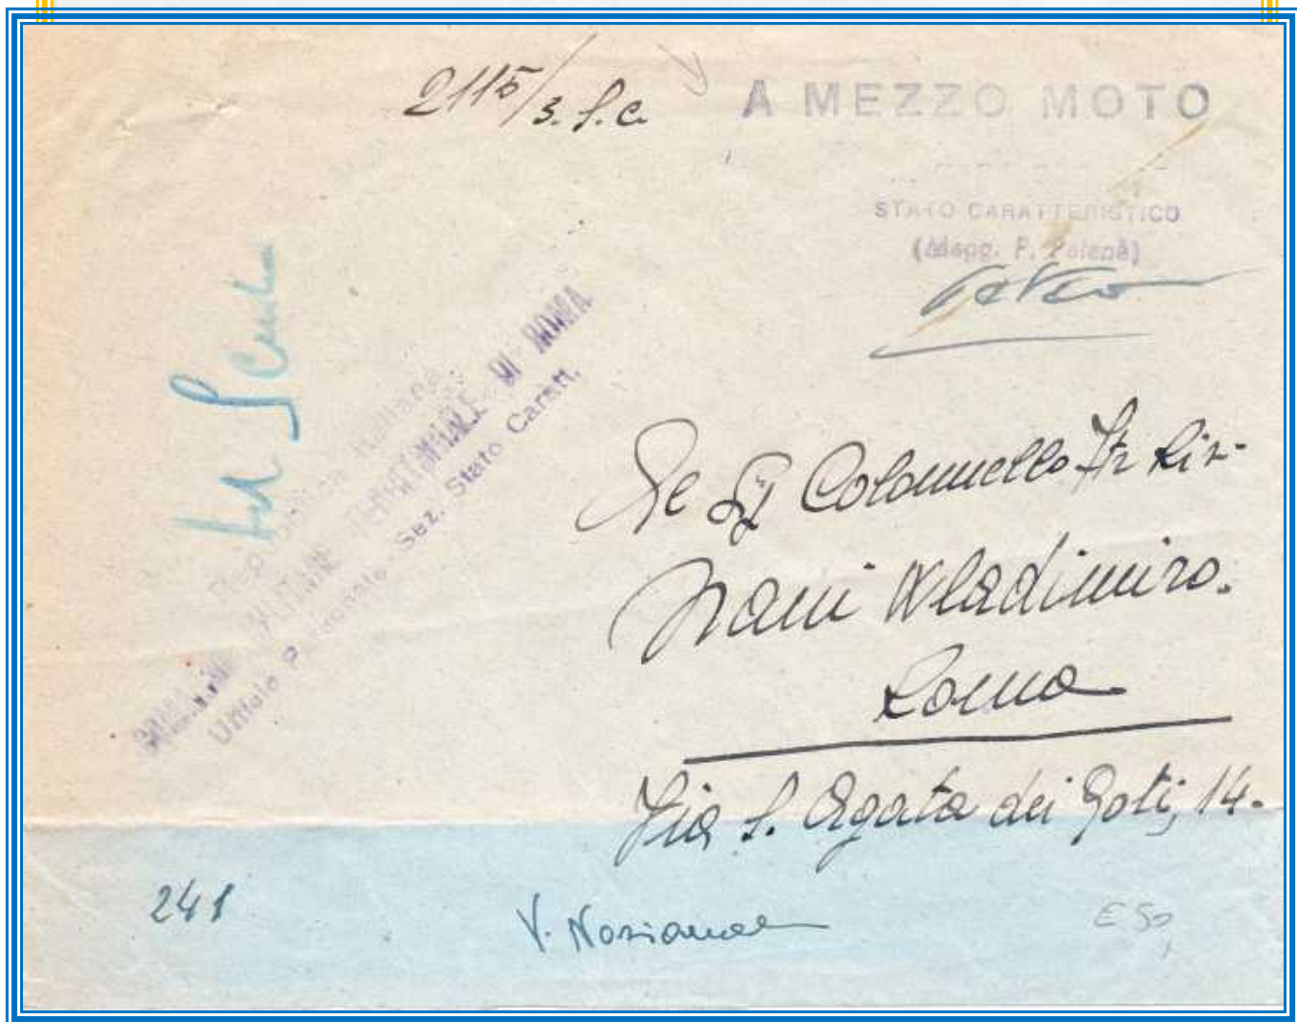 2115/3.S.C.
A MEZZO MOTO
STATO CARATTERISTICO
(Magg. P.
Repubblica Italiana
MILITARE TERRITORIALE DI ROMA
Ufficio Personale - Sez. Stato Caratt.
Colonnello
Nani Wladimiro.
Roma
Via S. Agata dei Goti, 14.
241
V. Nazionale
€ 50,